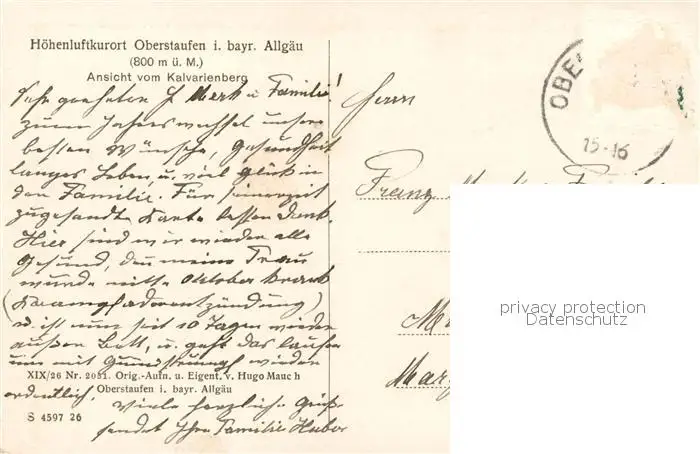 Höhenluftkurort Oberstaufen i. bayr. Allgäu
(800 m ü. M.)
Ansicht vom Kalvarienberg
Sehr geehrter H Merk u Familie!
zum Jahreswechsel unsere
besten Wünsche, Gesundheit
langes Leben, u. viel Glück in
der Familie. Für seinerzeit
zugesandte Karte besten Dank.
Hier sind wir wieder alle
Gesund, den meine Frau
wurde mitte Oktober krank
(Krampfaderentzündung)
u. ist nun seit 10 Tagen wieder
außer Bett, u. geht das laufen
nun mit Gummistrumpf wieder
XIX/26 Nr. 2051. Orig.-Aufn. u. Eigent. v. Hugo Mauch
ordentlich.
Oberstaufen i. bayr. Allgäu
Viele herzliche Grüße
S 4597 26
sendet Ihre Familie Huber
Herrn
OBE
15-16
Franz
privacy protection
Datenschutz